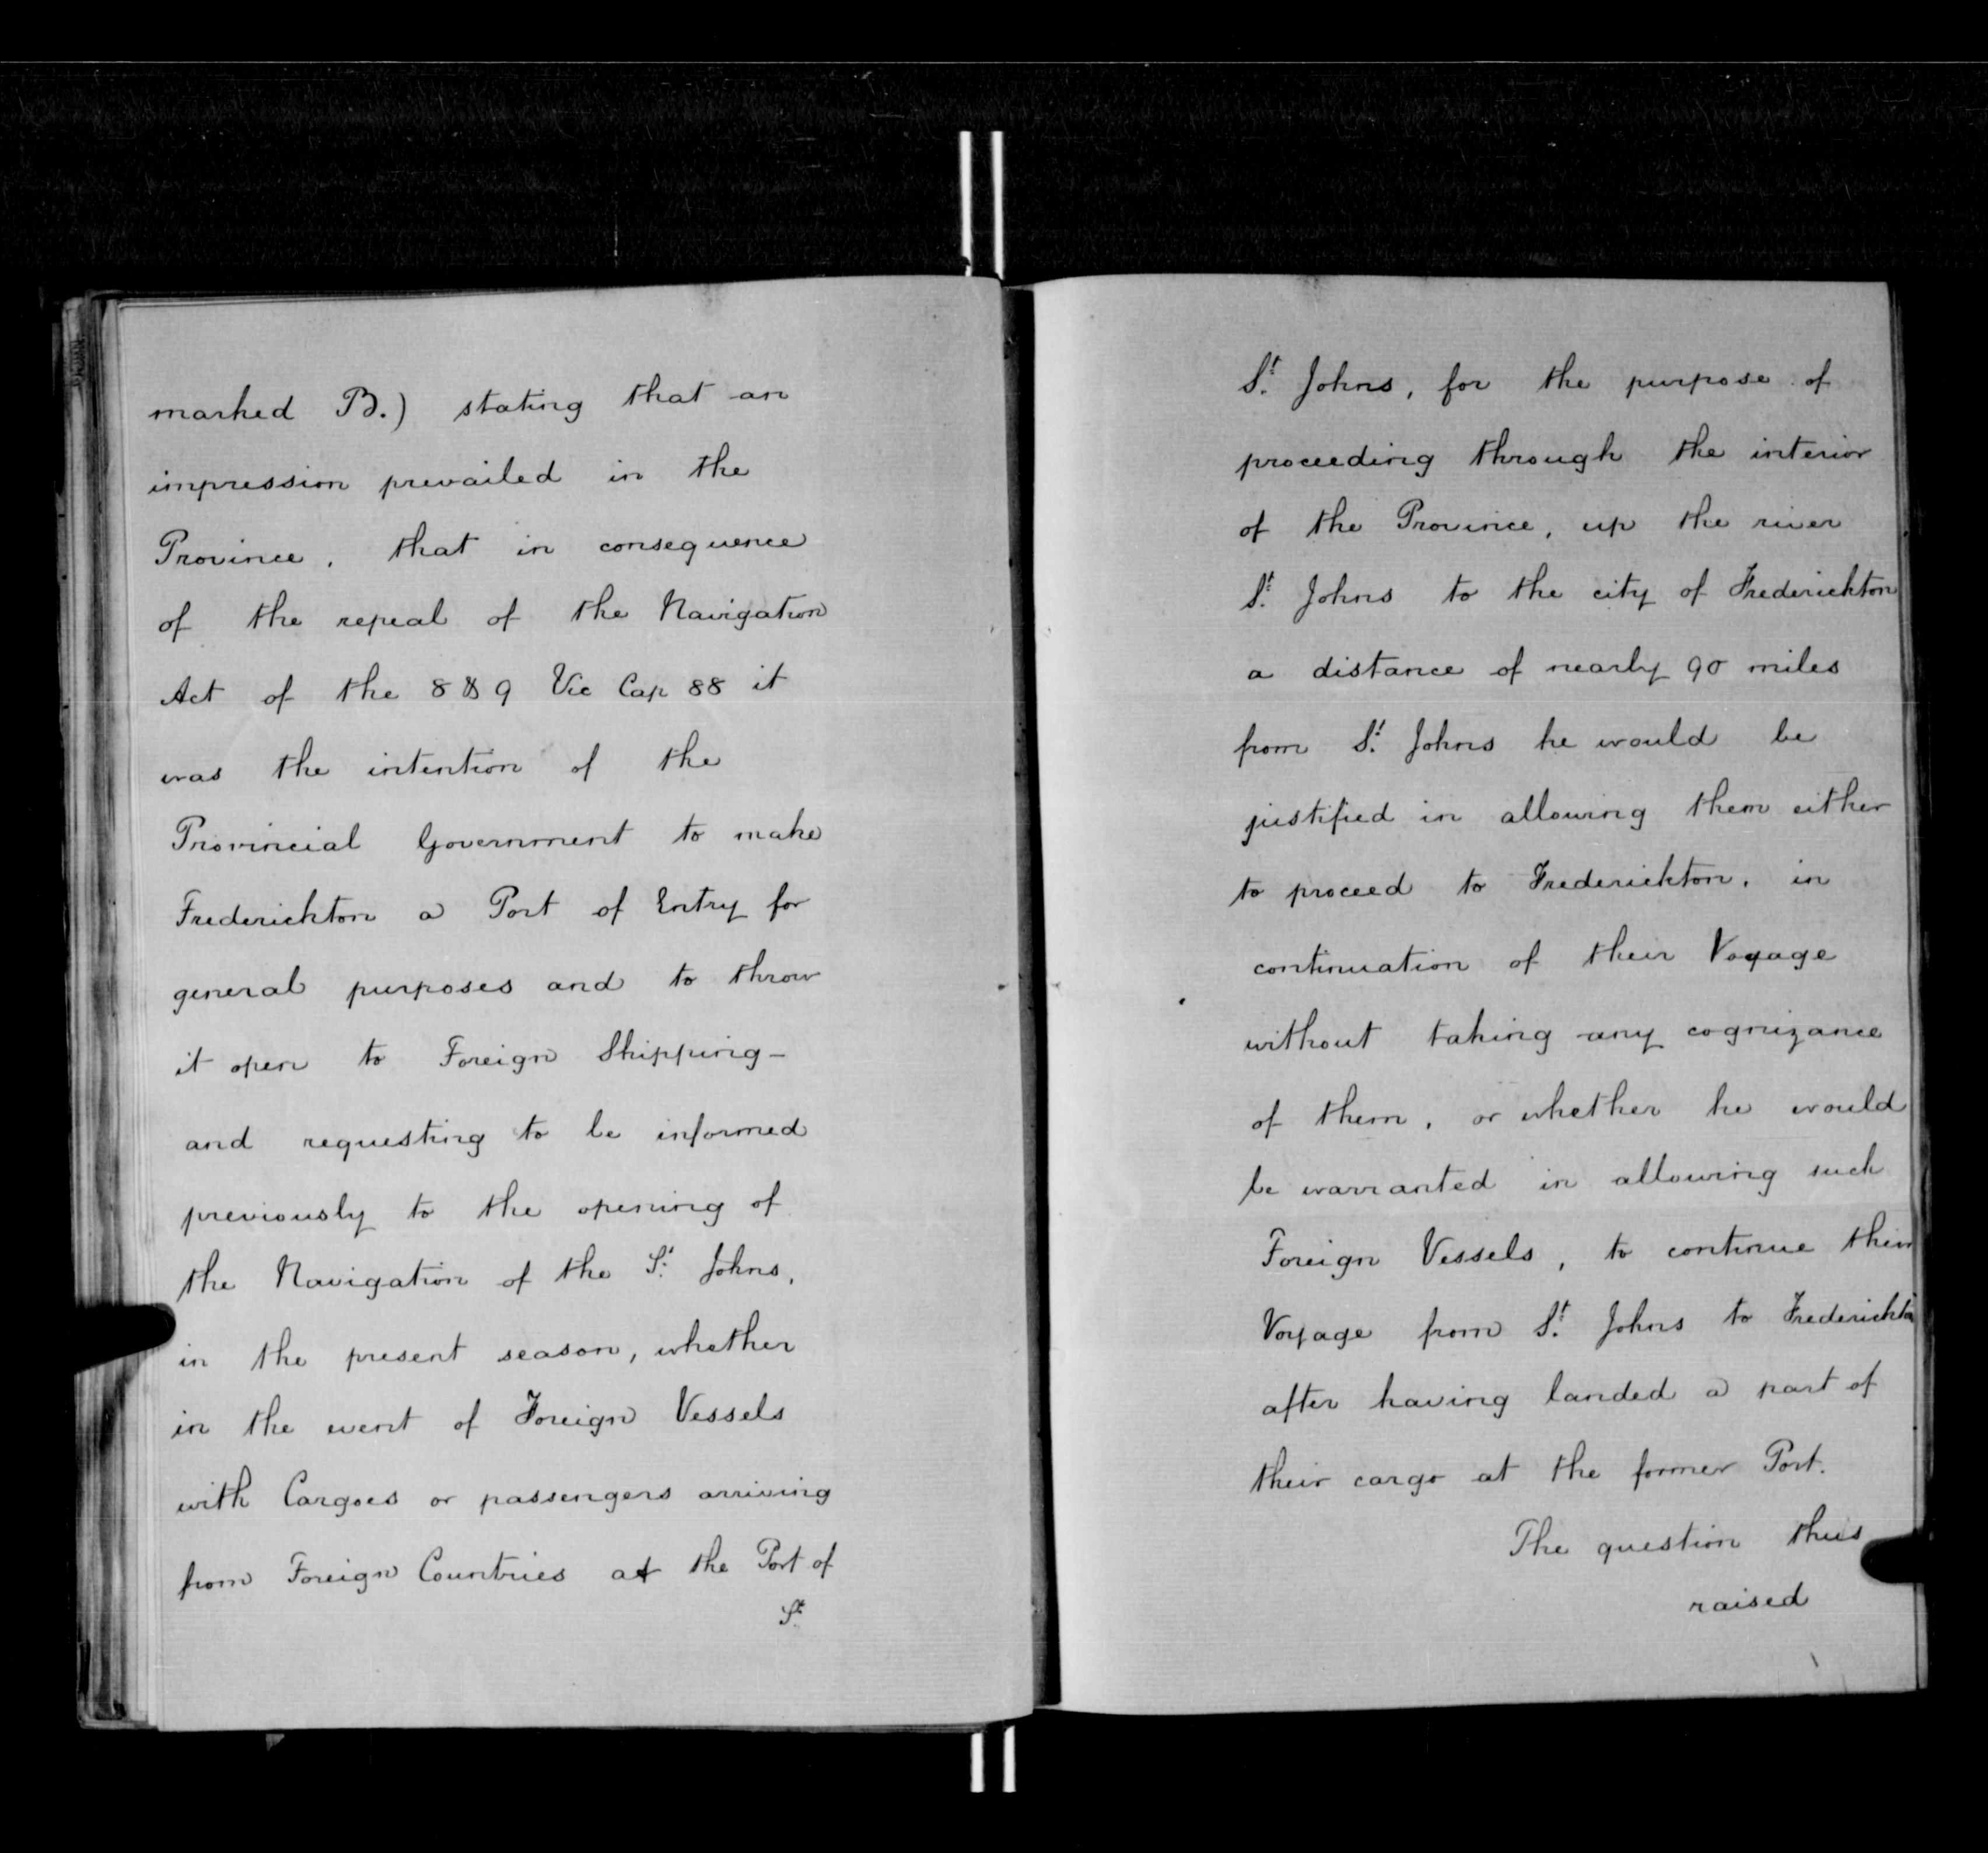 marked B.) stating that an
impression prevailed in the
Province, that in consequence
of the repeal of the Navigation
Act of the 8 & 9 Vic Cap 88 it
was the intention of the
Provincial Government to make
Frederickton a Port of Entry for
general purposes and to throw
it open to Foreign Shipping –
and requesting to be informed
previously to the opening of
the Navigation of the St Johns,
in the present season, whether
in the event of Foreign Vessels
with Cargoes or passengers arriving
from Foreign Countries at the Port of
St
St Johns, for the purpose of
proceeding through the interior
of the Province, up the river
St Johns to the city of Frederickton
a distance of nearly 90 miles
from St Johns he would be
justified in allowing them either
to proceed to Frederickton, in
continuation of their Voyage
without taking any cognizance
of them, or whether he would
be warranted in allowing such
Foreign Vessels, to continue their
Voyage from St Johns to Frederickton
after having landed a part of
their cargo at the former Port.
The question thus
raised